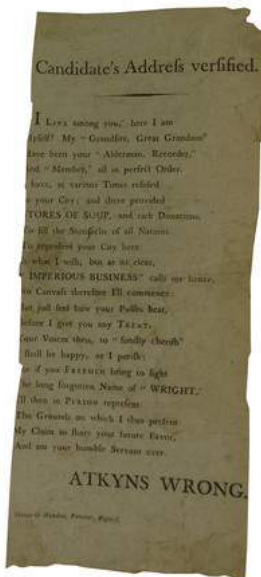 Candidate's Addreſs verſified.
I LIVE among you," here I am
Myſelf! My "Grandſire, Great Grandam"
Have been your "Alderman, Recorder,"
And "Member," all in perfect Order.
have, at various Times reſided
your City; and there provided
STORES OF SOUP, and rack Donations,
To fill the Stomachs of all Nations
To repreſent your City here
Is what I wiſh, but as 'tis clear,
IMPERIOUS BUSINESS" calls me hence,
Canvaſs therefore I'll commence:
But juſt feel how your Pulſes beat,
Before I give you any TREAT,
Your Voices thus, to "fondly cheriſh"
I ſhall be happy, or I periſh:
For if you FREEMEN bring to light
The long forgotten Name of "WRIGHT,"
I'll then in PERSON repreſent
The Grounds on which I thus preſent
My Claim to ſhare your future Favor,
And am your humble Servant ever.
ATKYNS WRONG.
Printer,